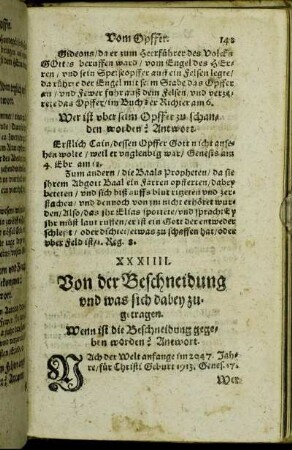 Vom Opffer. 142
Gideons / da er zum Heerführer des Volcks
GOttes beruffen ward / vom Engel des HEr-
ren / und sein Speisopffer auff ein Felsen legte /
da rührte der Engel mit seim Stabe das Opffer
an / und Fewer fuhr auß dem Felsen / und verze-
rete das Opffer / im Buch der Richter am 6.
Wer ist uber seim Opffer zu schan-
den worden? Antwort.
Erstlich Cain / dessen Opffer Gott nicht anse-
hen wolte / weil er ungleubig war / Genesis am
4. Ebr. am 12.
Zum andern / die Baals Propheten / da sie
ihrem Abgott Baal ein Farren opfferten / dabey
beteten / und sich biß auffs blut ritzeten und zer-
stachen / und dennoch von im nicht erhöret wur-
den / Also / das ihr Elias spottete / und sprach: Ey
ihr müst laut ruffen / er ist ein Gott der entweder
schlefft / oder dichtet / etwas zu schaffen hat / oder
uber Feld ist / 1. Reg. 8.
XXXIIII.
Von der Beschneidung
und was sich dabey zu-
getragen.
Wenn ist die Beschneidung gege-
ben worden? Antwort.
NAch der Welt anfange im 2047. Jah-
re / für Christi Geburt 1913. Genes. 17.
Wer